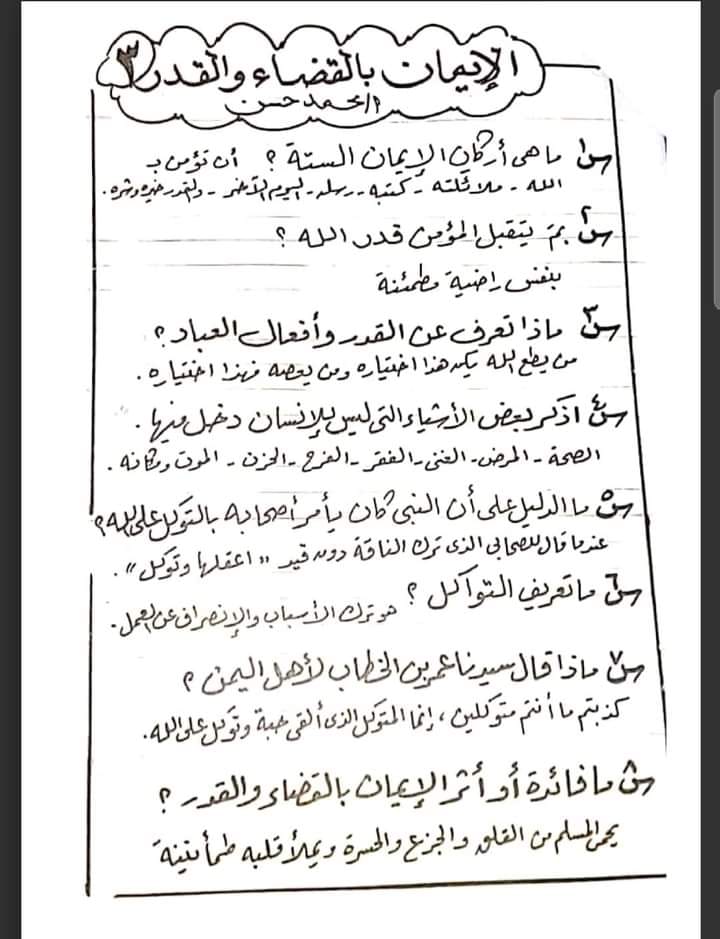 الإيمان بالقضاء والقدر ٣
أ/محمد حسن
س١ ما هى أركان الإيمان الستة ؟ أن تؤمن بـ
الله - ملائكته - كتبه - رسله - اليوم الآخر - والقدر خيره وشره.
س٢ بم يتقبل المؤمن قدر الله ؟
بنفس راضية مطمئنة
س٣ ماذا تعرف عن القدر وأفعال العباد؟
من يطع الله يكن هذا اختياره ومن يعصه فهذا اختياره.
س٤ اذكر بعض الأشياء التى ليس للإنسان دخل فيها.
الصحة - المرض - الغنى - الفقر - الفرح - الحزن - الموت ومكانه.
س٥ ما الدليل على أن النبى كان يأمر أصحابه بالتوكل على الله؟
عندما قال للصحابى الذى ترك الناقة دون قيد "اعقلها وتوكل".
س٦ ما تعريف التواكل ؟ هو ترك الأسباب والإنصراف عن العمل.
س٧ ماذا قال سيدنا عمر بن الخطاب لأهل اليمن ؟
كذبتم ما أنتم متوكلين، إنما المتوكل الذى ألقى حبة وتوكل على الله.
س٨ ما فائدة أو أثر الإيمان بالقضاء والقدر ؟
يحمى المسلم من القلق والجزع والحسرة ويملأ قلبه طمأنينة